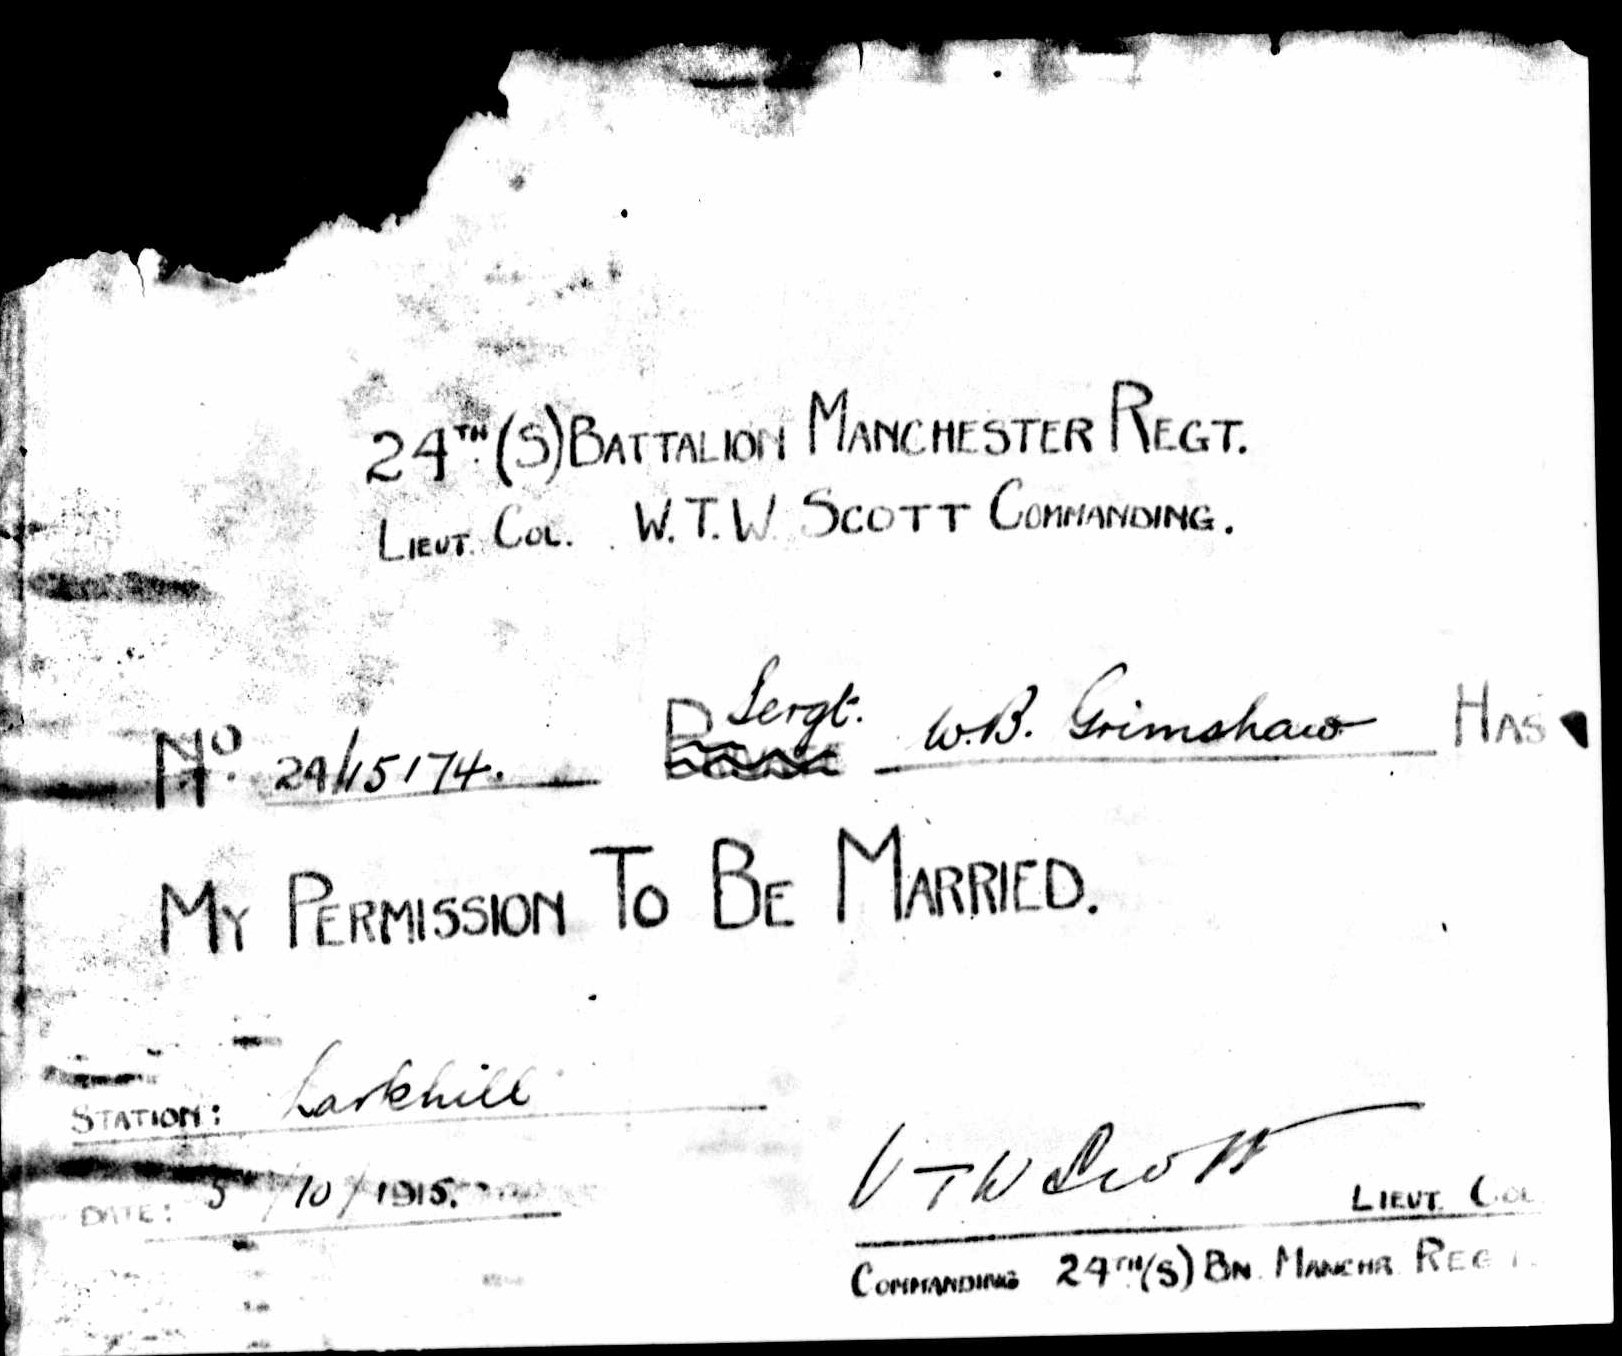 24TH (S) BATTALION MANCHESTER REGT.
LIEUT. COL. W.T.W. SCOTT COMMANDING.
Sergt.
No. 24/15174. W.B. Grimshaw HAS
MY PERMISSION TO BE MARRIED.
STATION: Larkhill
DATE: 5/10/1915.
WTW Scott LIEUT. COL
COMMANDING 24TH (S) BN. MANCHR REGT.